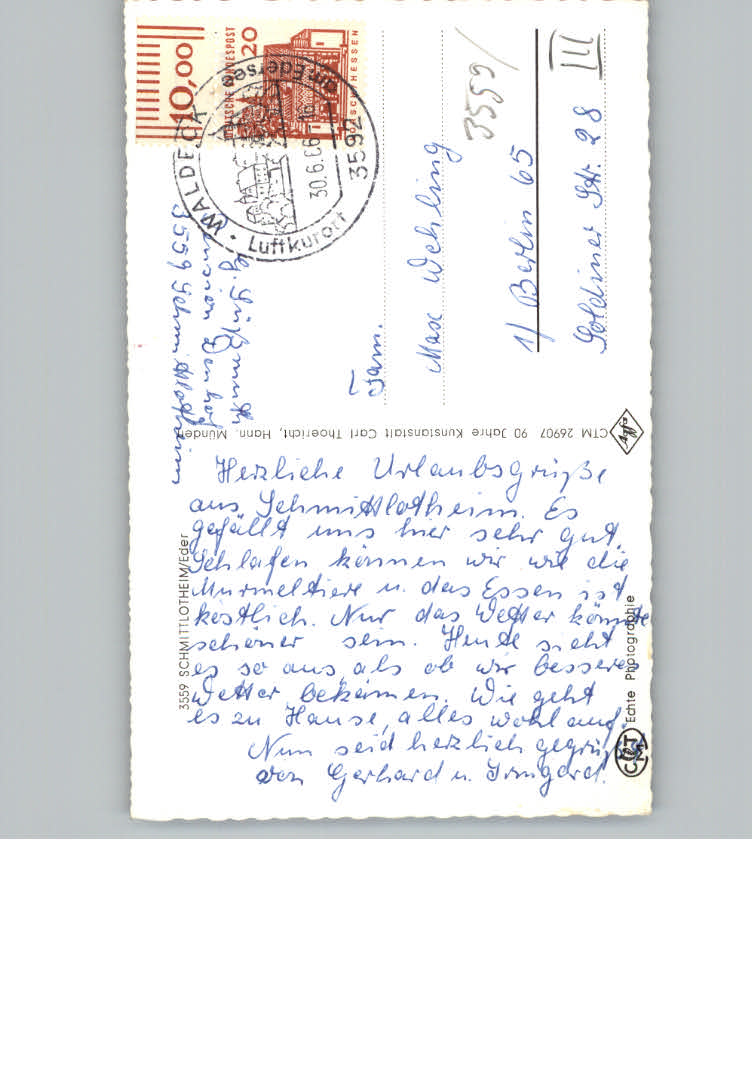 Herzliche Urlaubsgrüße
aus Schmittlotheim. Es
gefällt uns hier sehr gut.
Schlafen können wir wie die
Murmeltiere u. das Essen ist
köstlich. Nur das Wetter könnte
schöner sein. Heute sieht
es so aus, als ob wir besseres
Wetter bekämen. Wie geht
es zu Hause, alles wohlauf?
Nun seid herzlich gegrüßt
von Gerhard u. Irmgard.
3559 SCHMITTLOTHEIM/Eder
Echte Photographie
CTM 26907 90 Jahre Kunstanstalt Carl Thoericht, Hann. Münden
Agfa
3559 Schmittlotheim
Fam.
Max Wehling
1/ Berlin 65
Soldiner Str. 28
3559/
III
10,00
DEUTSCHE BUNDESPOST
20
3592 WALDECK
am Edersee
30.6.66
Luftkurort